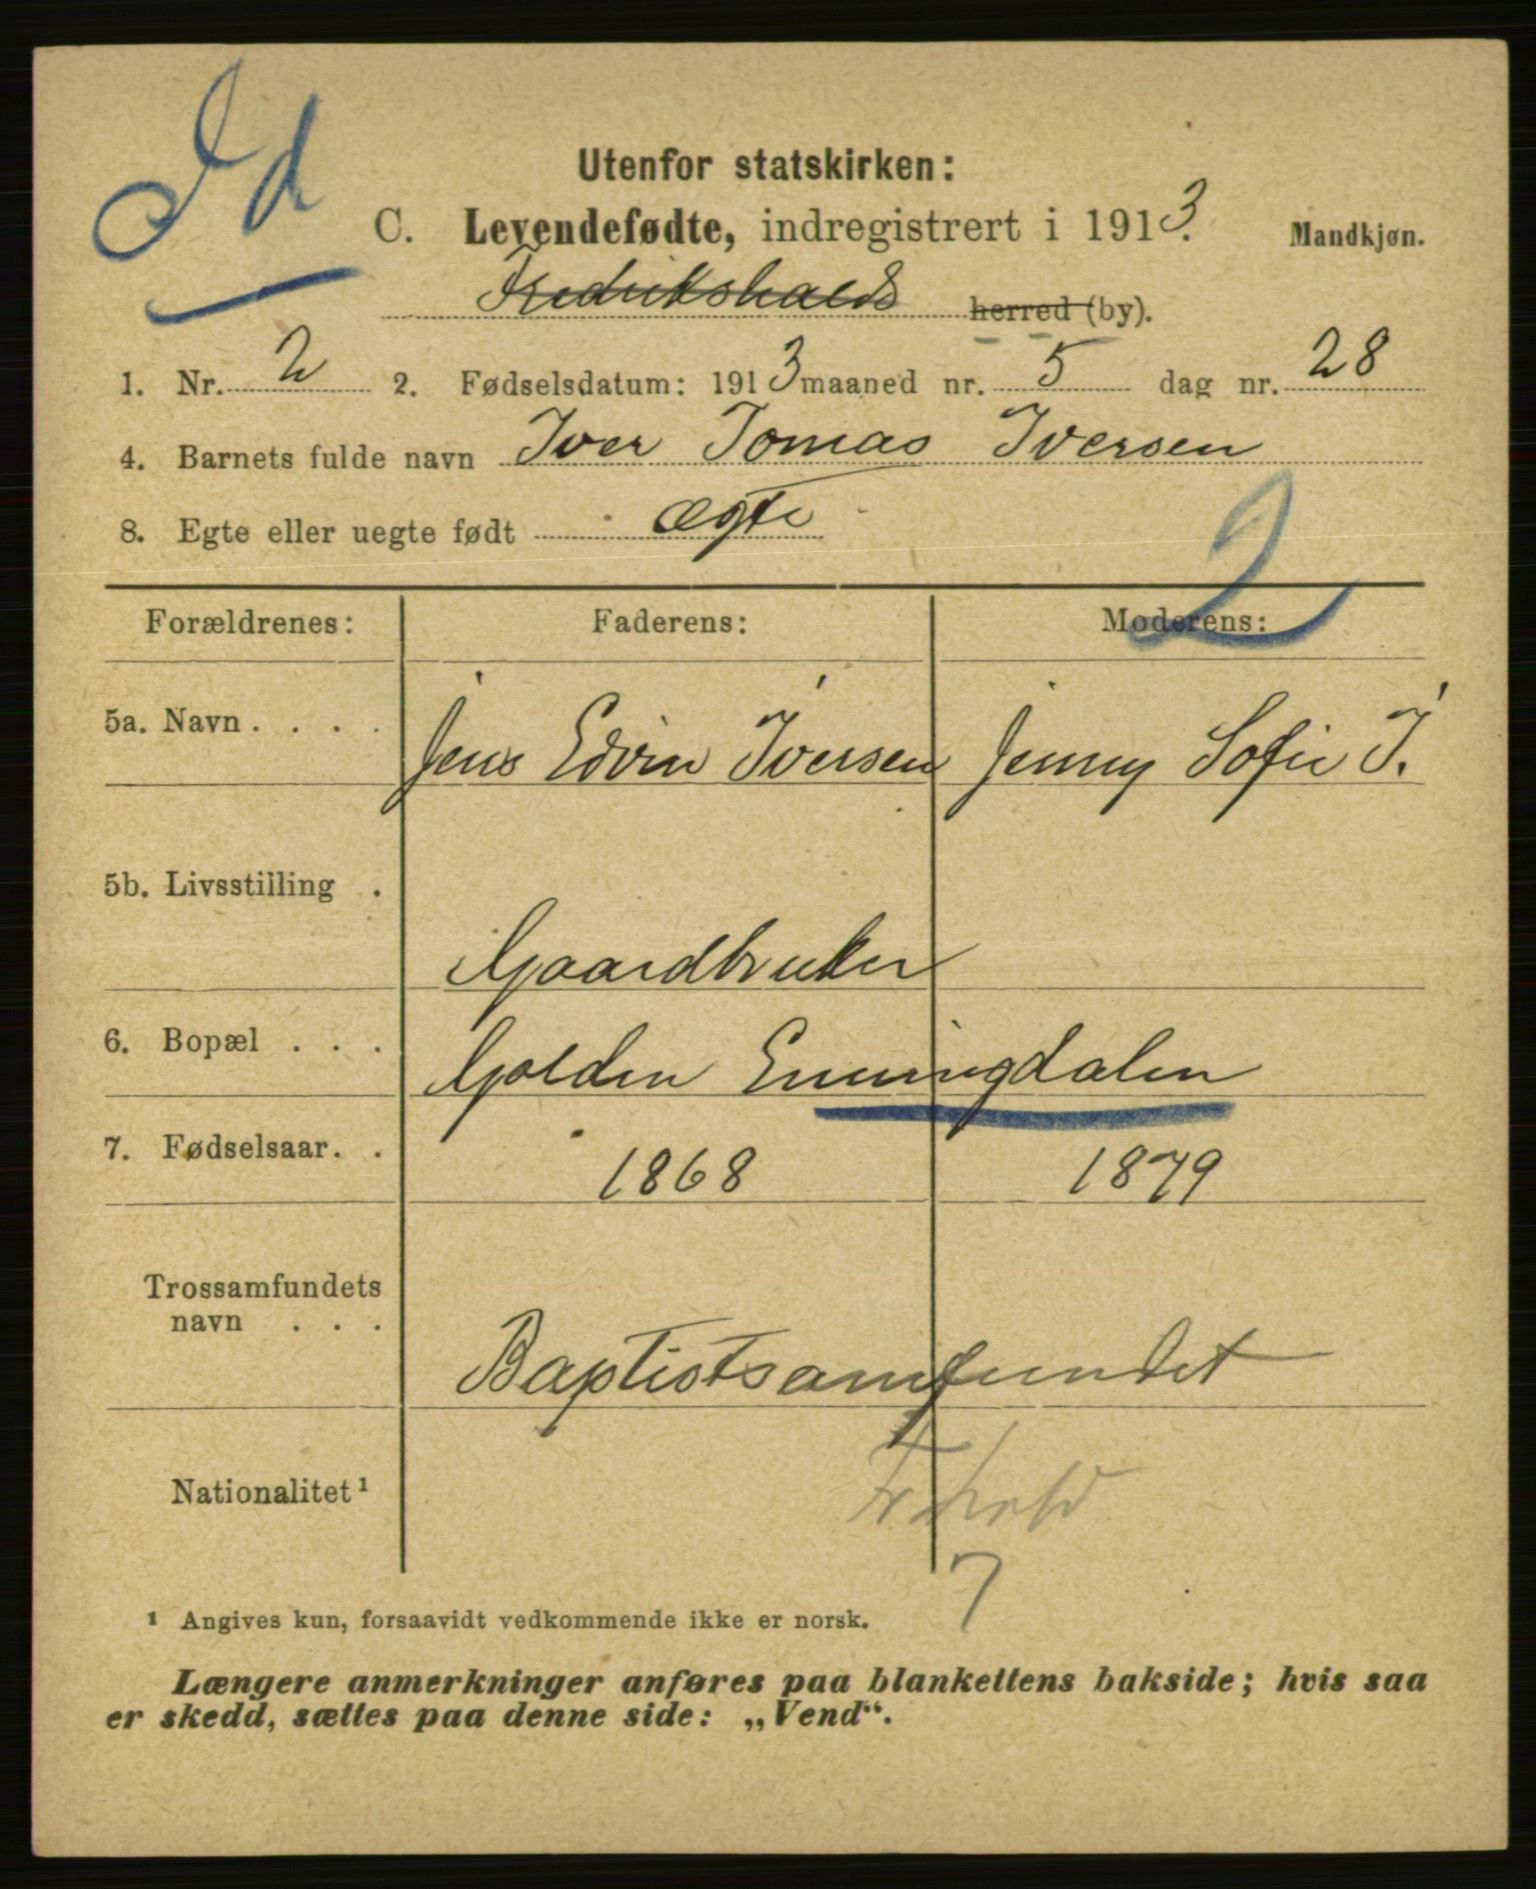 Id
Utenfor statskirken:
C. Levendefødte, indregistrert i 1913. Mandkjøn.
Fredrikshalds herred (by).
1. Nr. 2 2. Fødselsdatum: 1913 maaned nr. 5 dag nr. 28
4. Barnets fulde navn Iver Tomas Iversen
8. Egte eller uegte født ægte
2
Forældrenes: Faderens: Moderens:
5a. Navn . . . . Jens Edvin Iversen Jenny Sofie I.
5b. Livsstilling .
Gaardbruker
6. Bopæl . . . Golden Enningdalen
7. Fødselsaar. . 1868 1879
Trossamfundets
navn . . .
Baptistsamfundet
Nationalitet¹
Fr.hald
7
¹ Angives kun, forsaavidt vedkommende ikke er norsk.
Længere anmerkninger anføres paa blankettens bakside; hvis saa
er skedd, sættes paa denne side: „Vend“.